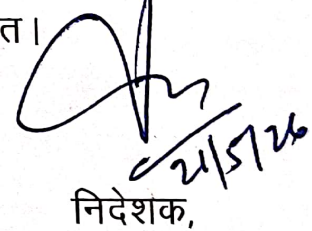 त।
21/5/26
निदेशक,